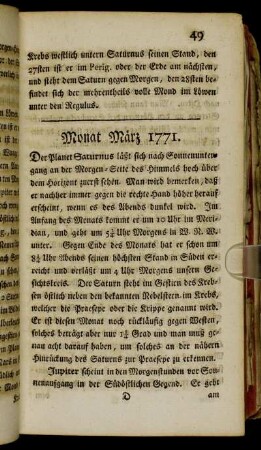 49
Krebs westlich untern Saturnus seinen Stand, den
27sten ist er im Perig. oder der Erde am nächsten,
und steht dem Saturn gegen Morgen, den 28sten be-
findet sich der mehrentheils volle Mond im Löwen
unter den Regulus.
Monat März 1771.
Der Planet Saturnus läßt sich nach Sonnenunter-
gang an der Morgen-Seite des Himmels hoch über
dem Horizont zuerst sehen. Man wird bemerken, daß
er nachher immer gegen die rechte Hand höher herauf
erscheint, wenn es des Abends dunkel wird. Im
Anfang des Monats kommt er um 10 Uhr im Meri-
dian, und geht um 5¾ Uhr Morgens in W. N. W.
unter. Gegen Ende des Monats hat er schon um
8¼ Uhr Abends seinen höchsten Stand in Süden er-
reicht und verläßt um 4 Uhr Morgens unsern Ge-
sichtskreis. Der Saturn steht im Gestirn des Kreb-
ses östlich neben den bekannten Nebelstern im Krebs,
welcher die Praesepe oder die Krippe genannt wird.
Er ist diesen Monat noch rückläufig gegen Westen,
solches beträgt aber nur 1½ Grad und man muß ge-
nau acht darauf haben, um solches an der nähern
Hinrückung des Saturns zur Praesepe zu erkennen.
Jupiter scheint in den Morgenstunden vor Son-
nenaufgang in der Südöstlichen Gegend. Er geht
D am